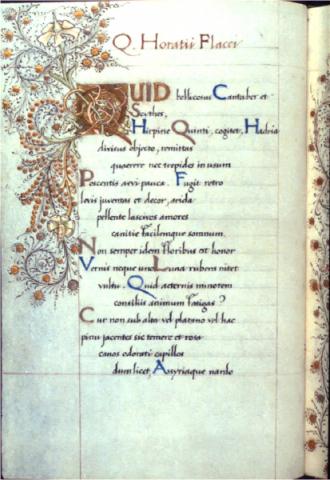 Q. Horatii Flacci
QUID bellicosus Cantaber et
Scythes,
Hirpine Quinti, cogitet, Hadria
divisus objecto, remittas
quaerere nec trepides in usum
Poscentis aevi pauca. Fugit retro
levis juventas et decor, arida
pellente lascivos amores
canitie facilemque somnum.
Non semper idem floribus est honor
Vernis neque uno Luna rubens nitet
vultu. Quid aeternis minorem
consiliis animum fatigas?
Cur non sub alta vel platano vel hac
pinu jacentes sic temere et rosa
canos odorati capillos
dum licet, Assyriaque nardo